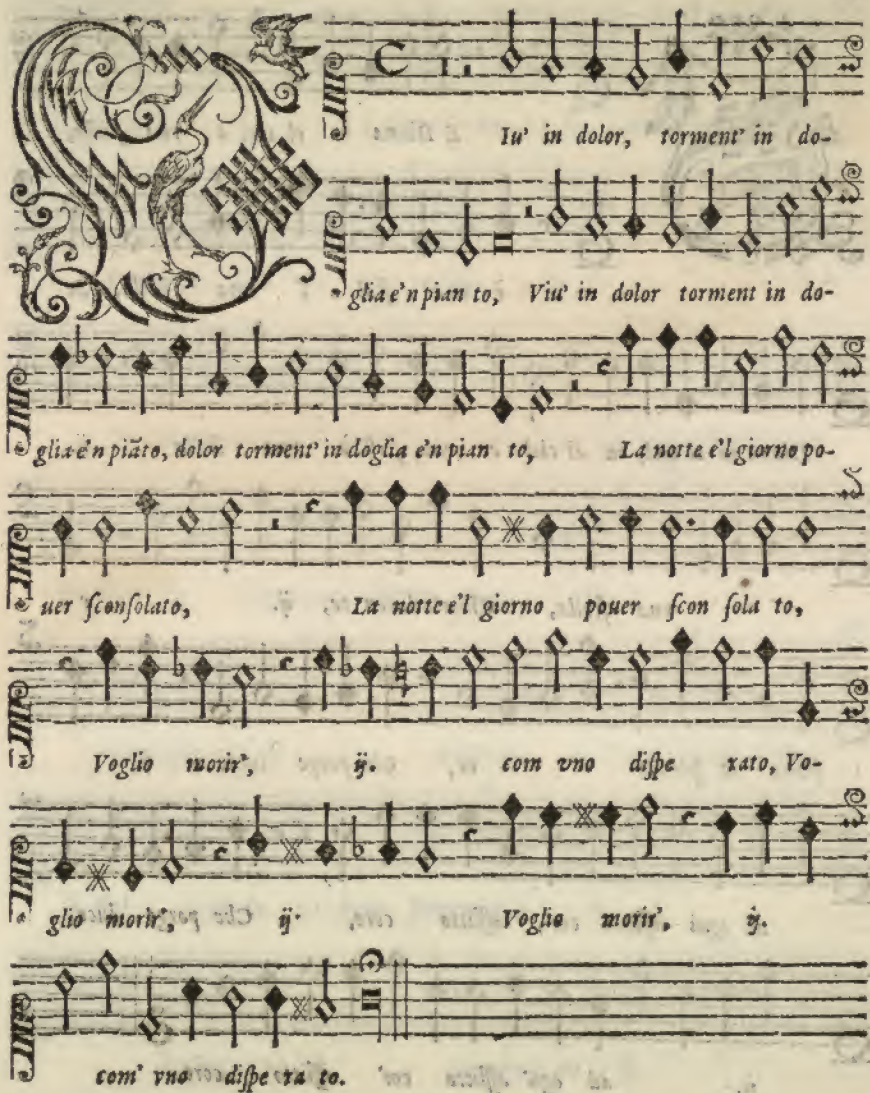 Iu' in dolor, torment' in do-
glia e'n pian to, Viu' in dolor torment in do-
glia e'n piãto, dolor torment' in doglia e'n pian to, La notte e'l giorno po-
uer ſconſolato, La notte e'l giorno pouer ſcon ſola to,
Voglio morir', ij. com vno diſpe rato, Vo-
glio morir', ij. Voglio morir', ij.
com' vno diſpe ra to.